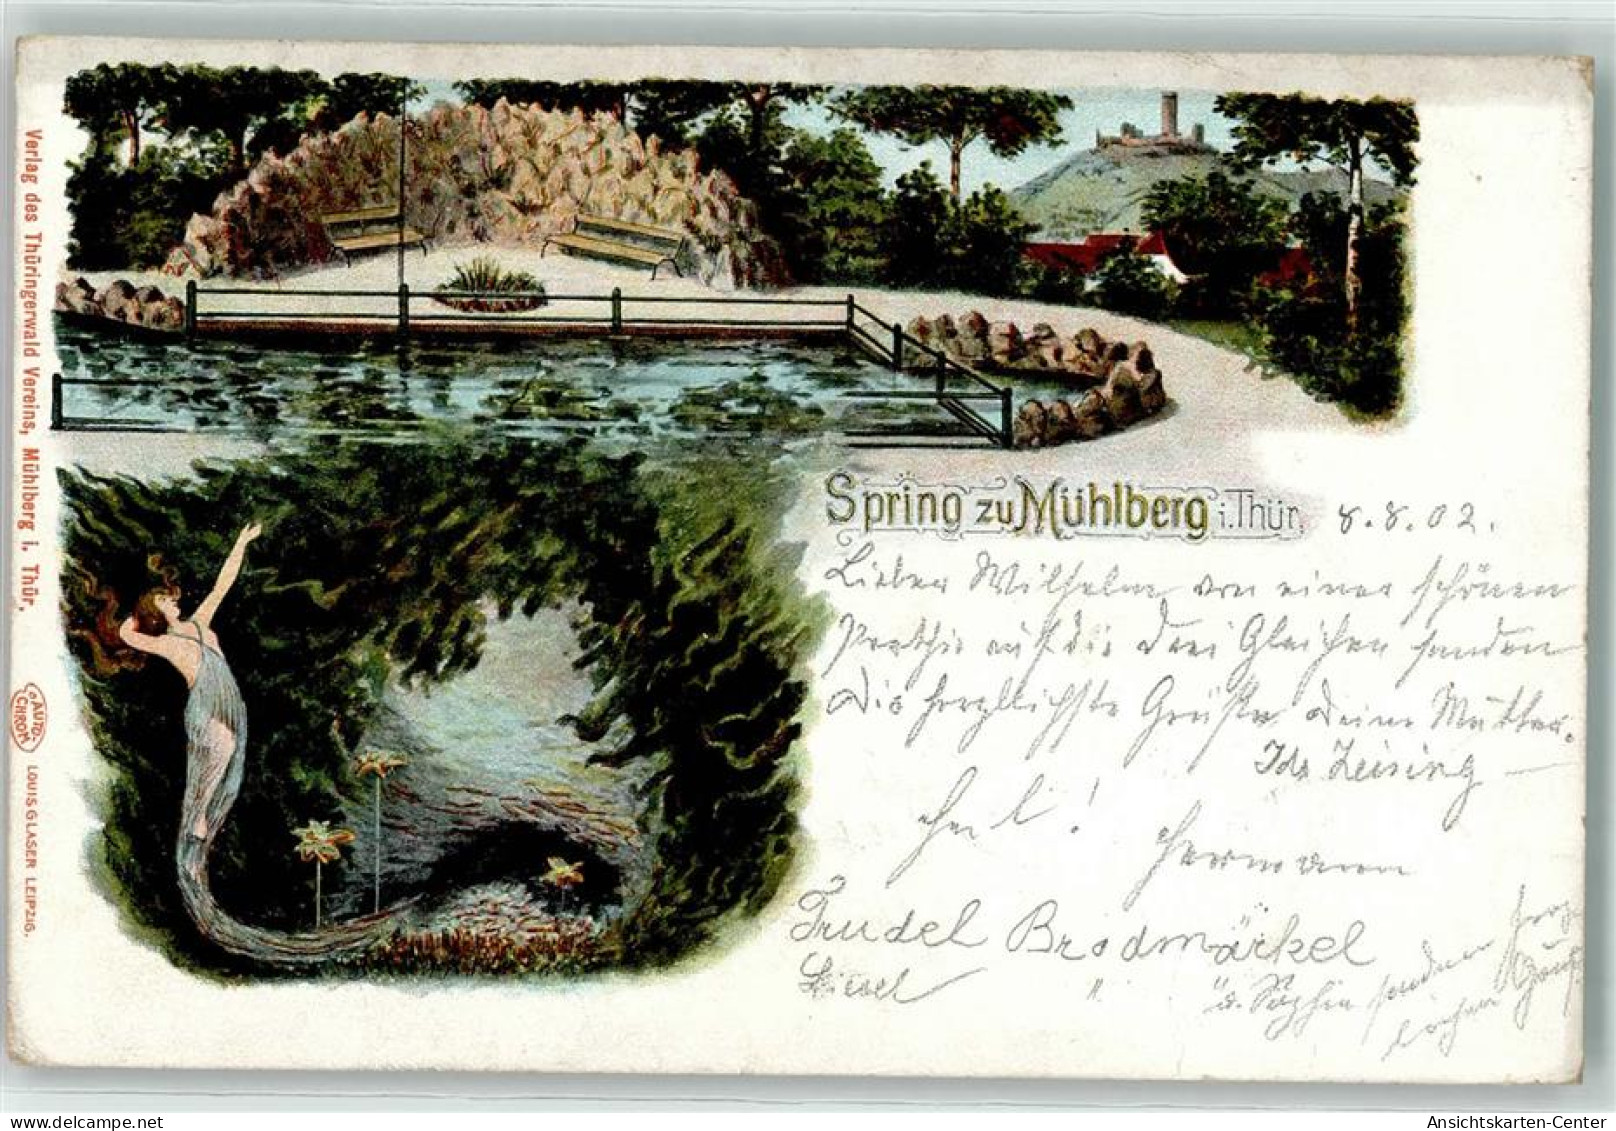 Verlag des Thüringerwald Vereins, Mühlberg i. Thür.
AUTO-CHROM
LOUIS GLASER LEIPZIG.
Spring zu Mühlberg i. Thür.
8.8.02.
Lieber Wilhelm von einer schönen
Parthie auf die drei Gleichen senden
Die herzlichsten Grüße Deine Mutter.
Ida Zeising
Heil! Hermann
Trudel Brodmärkel
Liesel " " u. Sophie senden
Ansichtskarten-Center